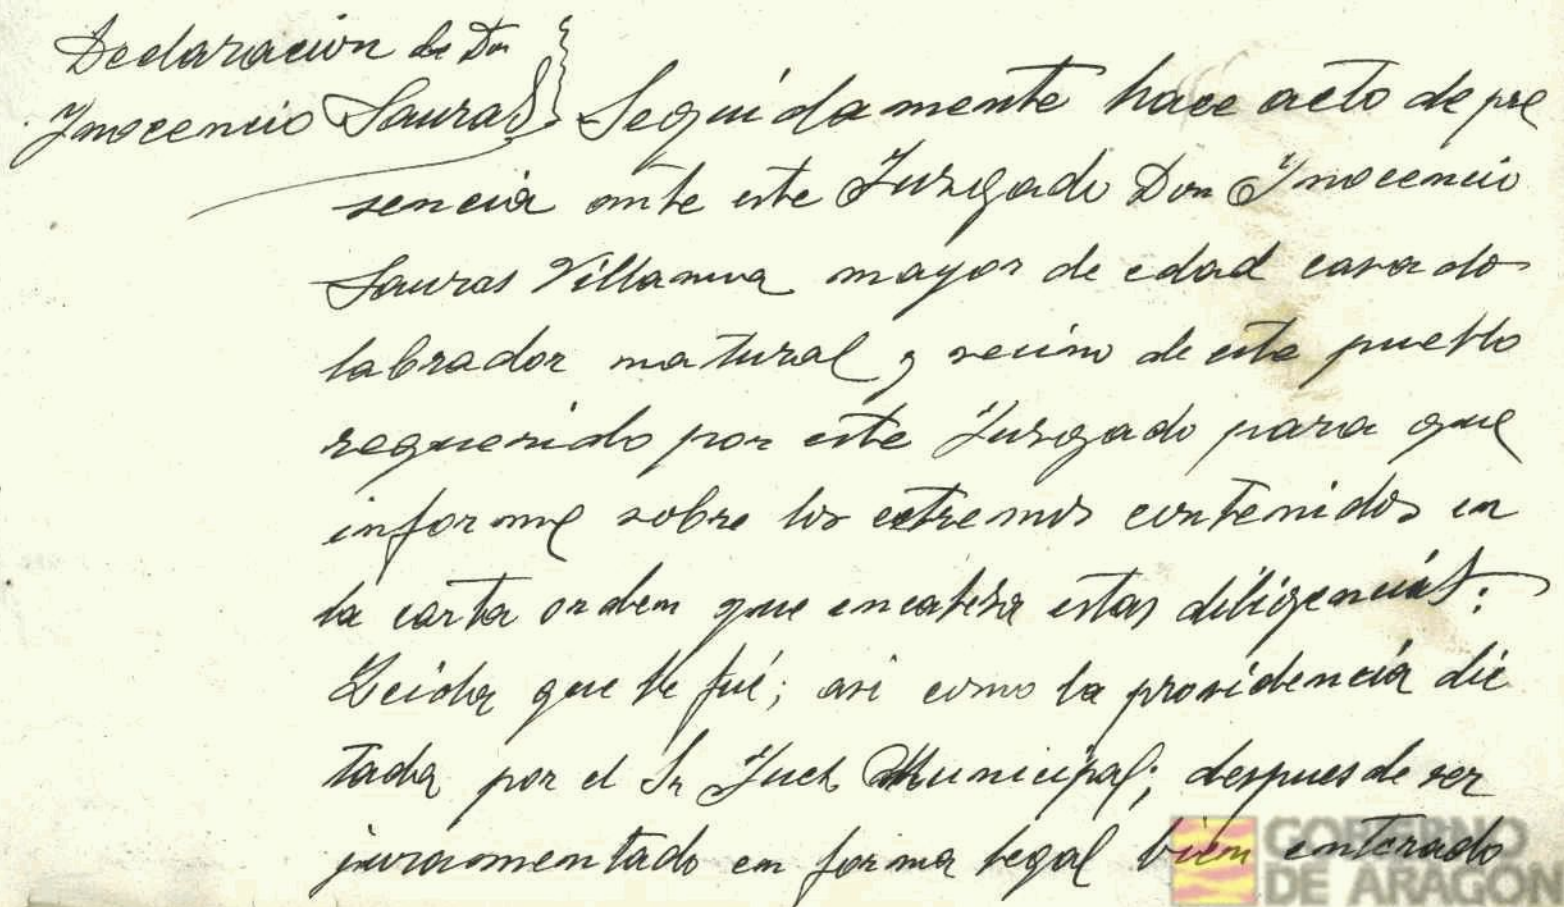 Declaracion de Dn
Inocencio Sauras
Seguidamente hace acto de pre
sencia ante este Juzgado Don Inocencio
Sauras Villanueva mayor de edad casado
labrador natural y vecino de este pueblo
requerido por este Juzgado para que
informe sobre los extremos contenidos en
la carta orden que encabeza estas diligencias:
Leida que le fué; asi como la providencia dic
tada por el Sr Juez Municipal; despues de ser
juramentado en forma legal bien enterado
GOBIERNO
DE ARAGON